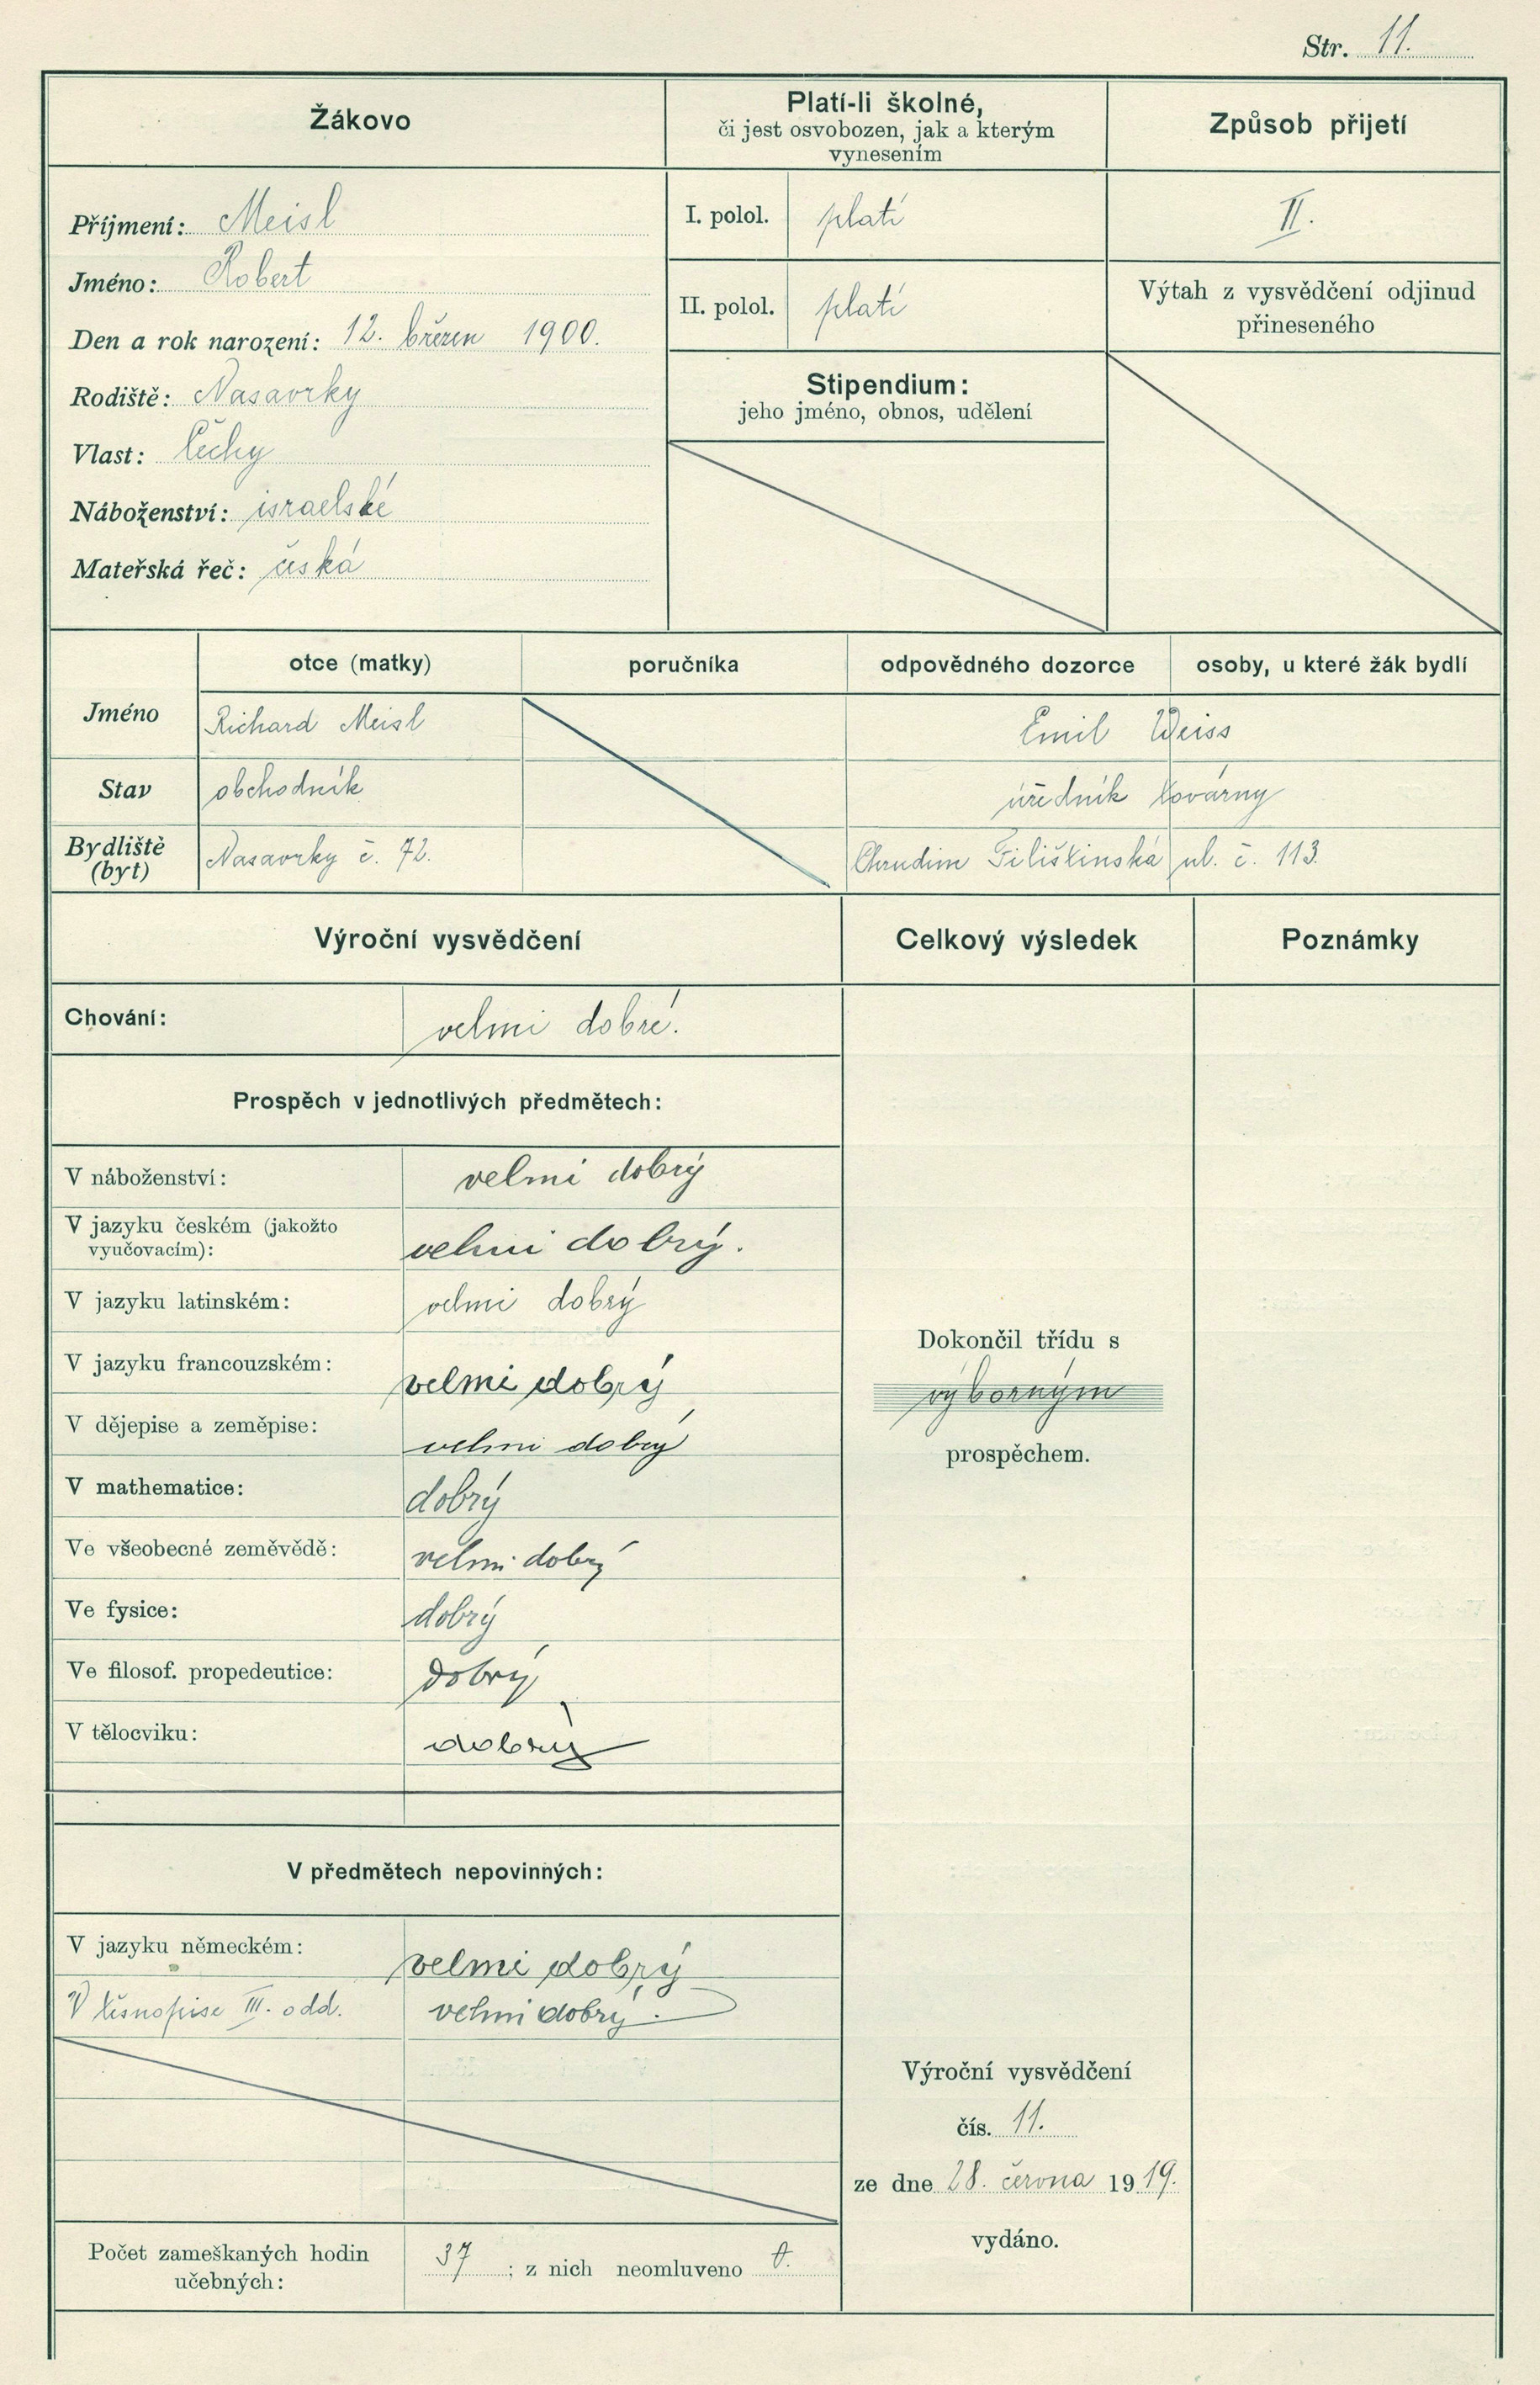 Str. 11.
Žákovo
Platí-li školné,
či jest osvobozen, jak a kterým
vynesením
Způsob přijetí
Příjmení: Meisl
Jméno: Robert
Den a rok narození: 12. březen 1900.
Rodiště: Nasavrky
Vlast: Čechy
Náboženství: israelské
Mateřská řeč: česká
I. polol. platí
II. polol. platí
Stipendium:
jeho jméno, obnos, udělení
II.
Výtah z vysvědčení odjinud
přineseného
otce (matky) poručníka odpovědného dozorce osoby, u které žák bydlí
Jméno Richard Meisl Emil Weiss
Stav obchodník úředník továrny
Bydliště
(byt) Nasavrky č. 72. Chrudim Filištinská ul. č. 113.
Výroční vysvědčení Celkový výsledek Poznámky
Chování: velmi dobré.
Prospěch v jednotlivých předmětech:
V náboženství: velmi dobrý
V jazyku českém (jakožto
vyučovacím): velmi dobrý.
V jazyku latinském: velmi dobrý
V jazyku francouzském: velmi dobrý
V dějepise a zeměpise: velmi dobrý
V mathematice: dobrý
Ve všeobecné zeměvědě: velmi dobrý
Ve fysice: dobrý
Ve filosof. propedeutice: dobrý
V tělocviku: dobrý
Dokončil třídu s
výborným
prospěchem.
V předmětech nepovinných:
V jazyku německém: velmi dobrý
V těsnopise III. odd. velmi dobrý.
Výroční vysvědčení
čís. 11.
ze dne 28. června 1919.
vydáno.
Počet zameškaných hodin
učebných: 37; z nich neomluveno 0.